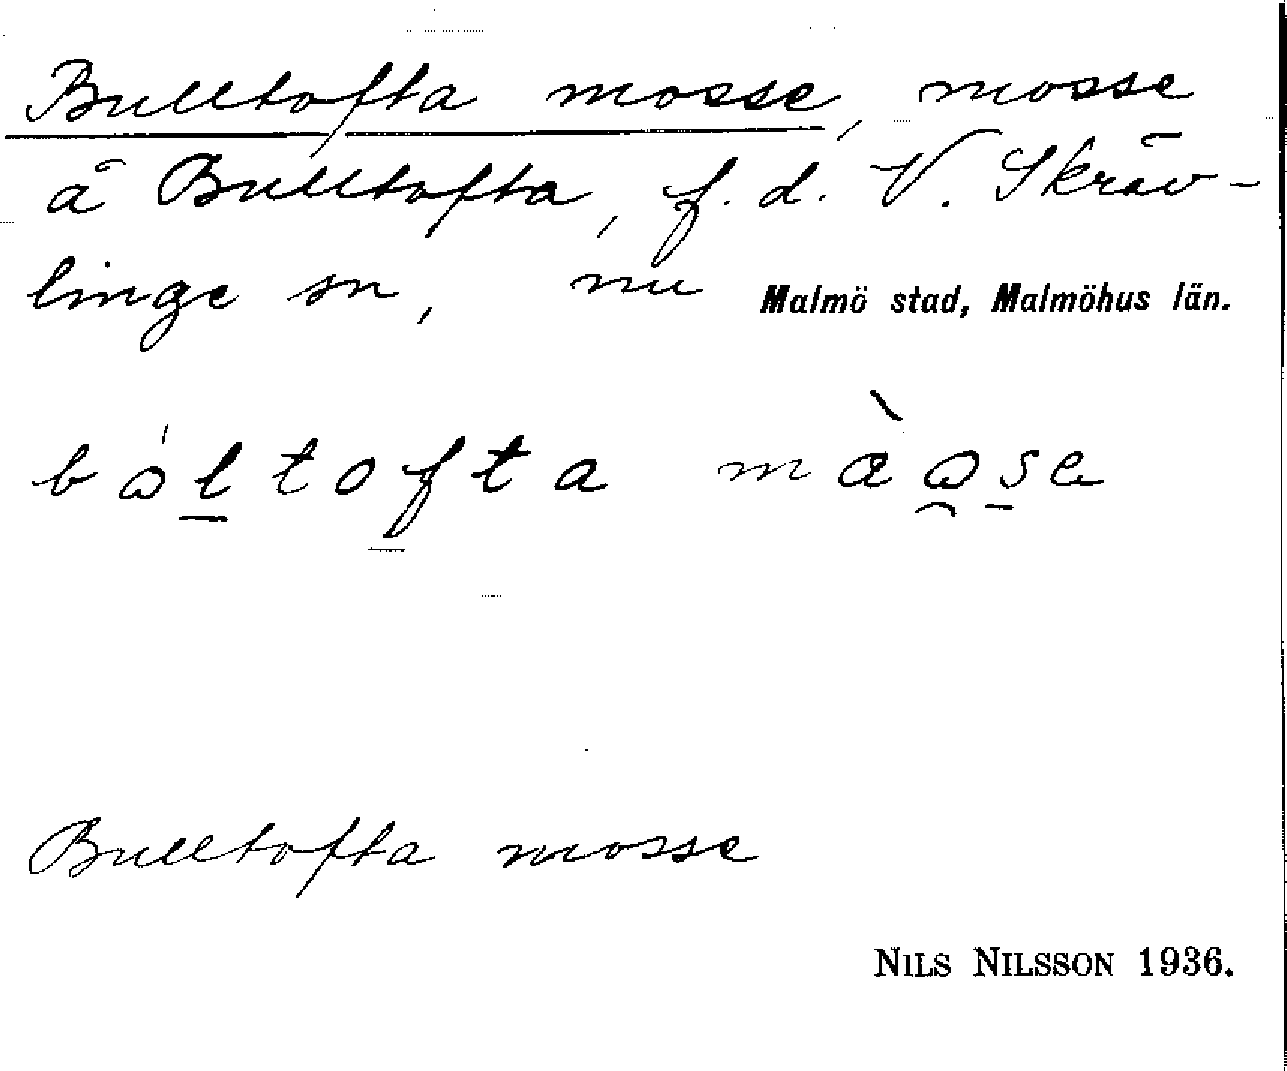 Bulltofta mosse, mosse
å Bulltofta, f.d. V. Skräv-
linge sn, nu Malmö stad, Malmöhus län.
bo̍ḻtof̱ta
Bulltofta mosse
NILS NILSSON 1936.